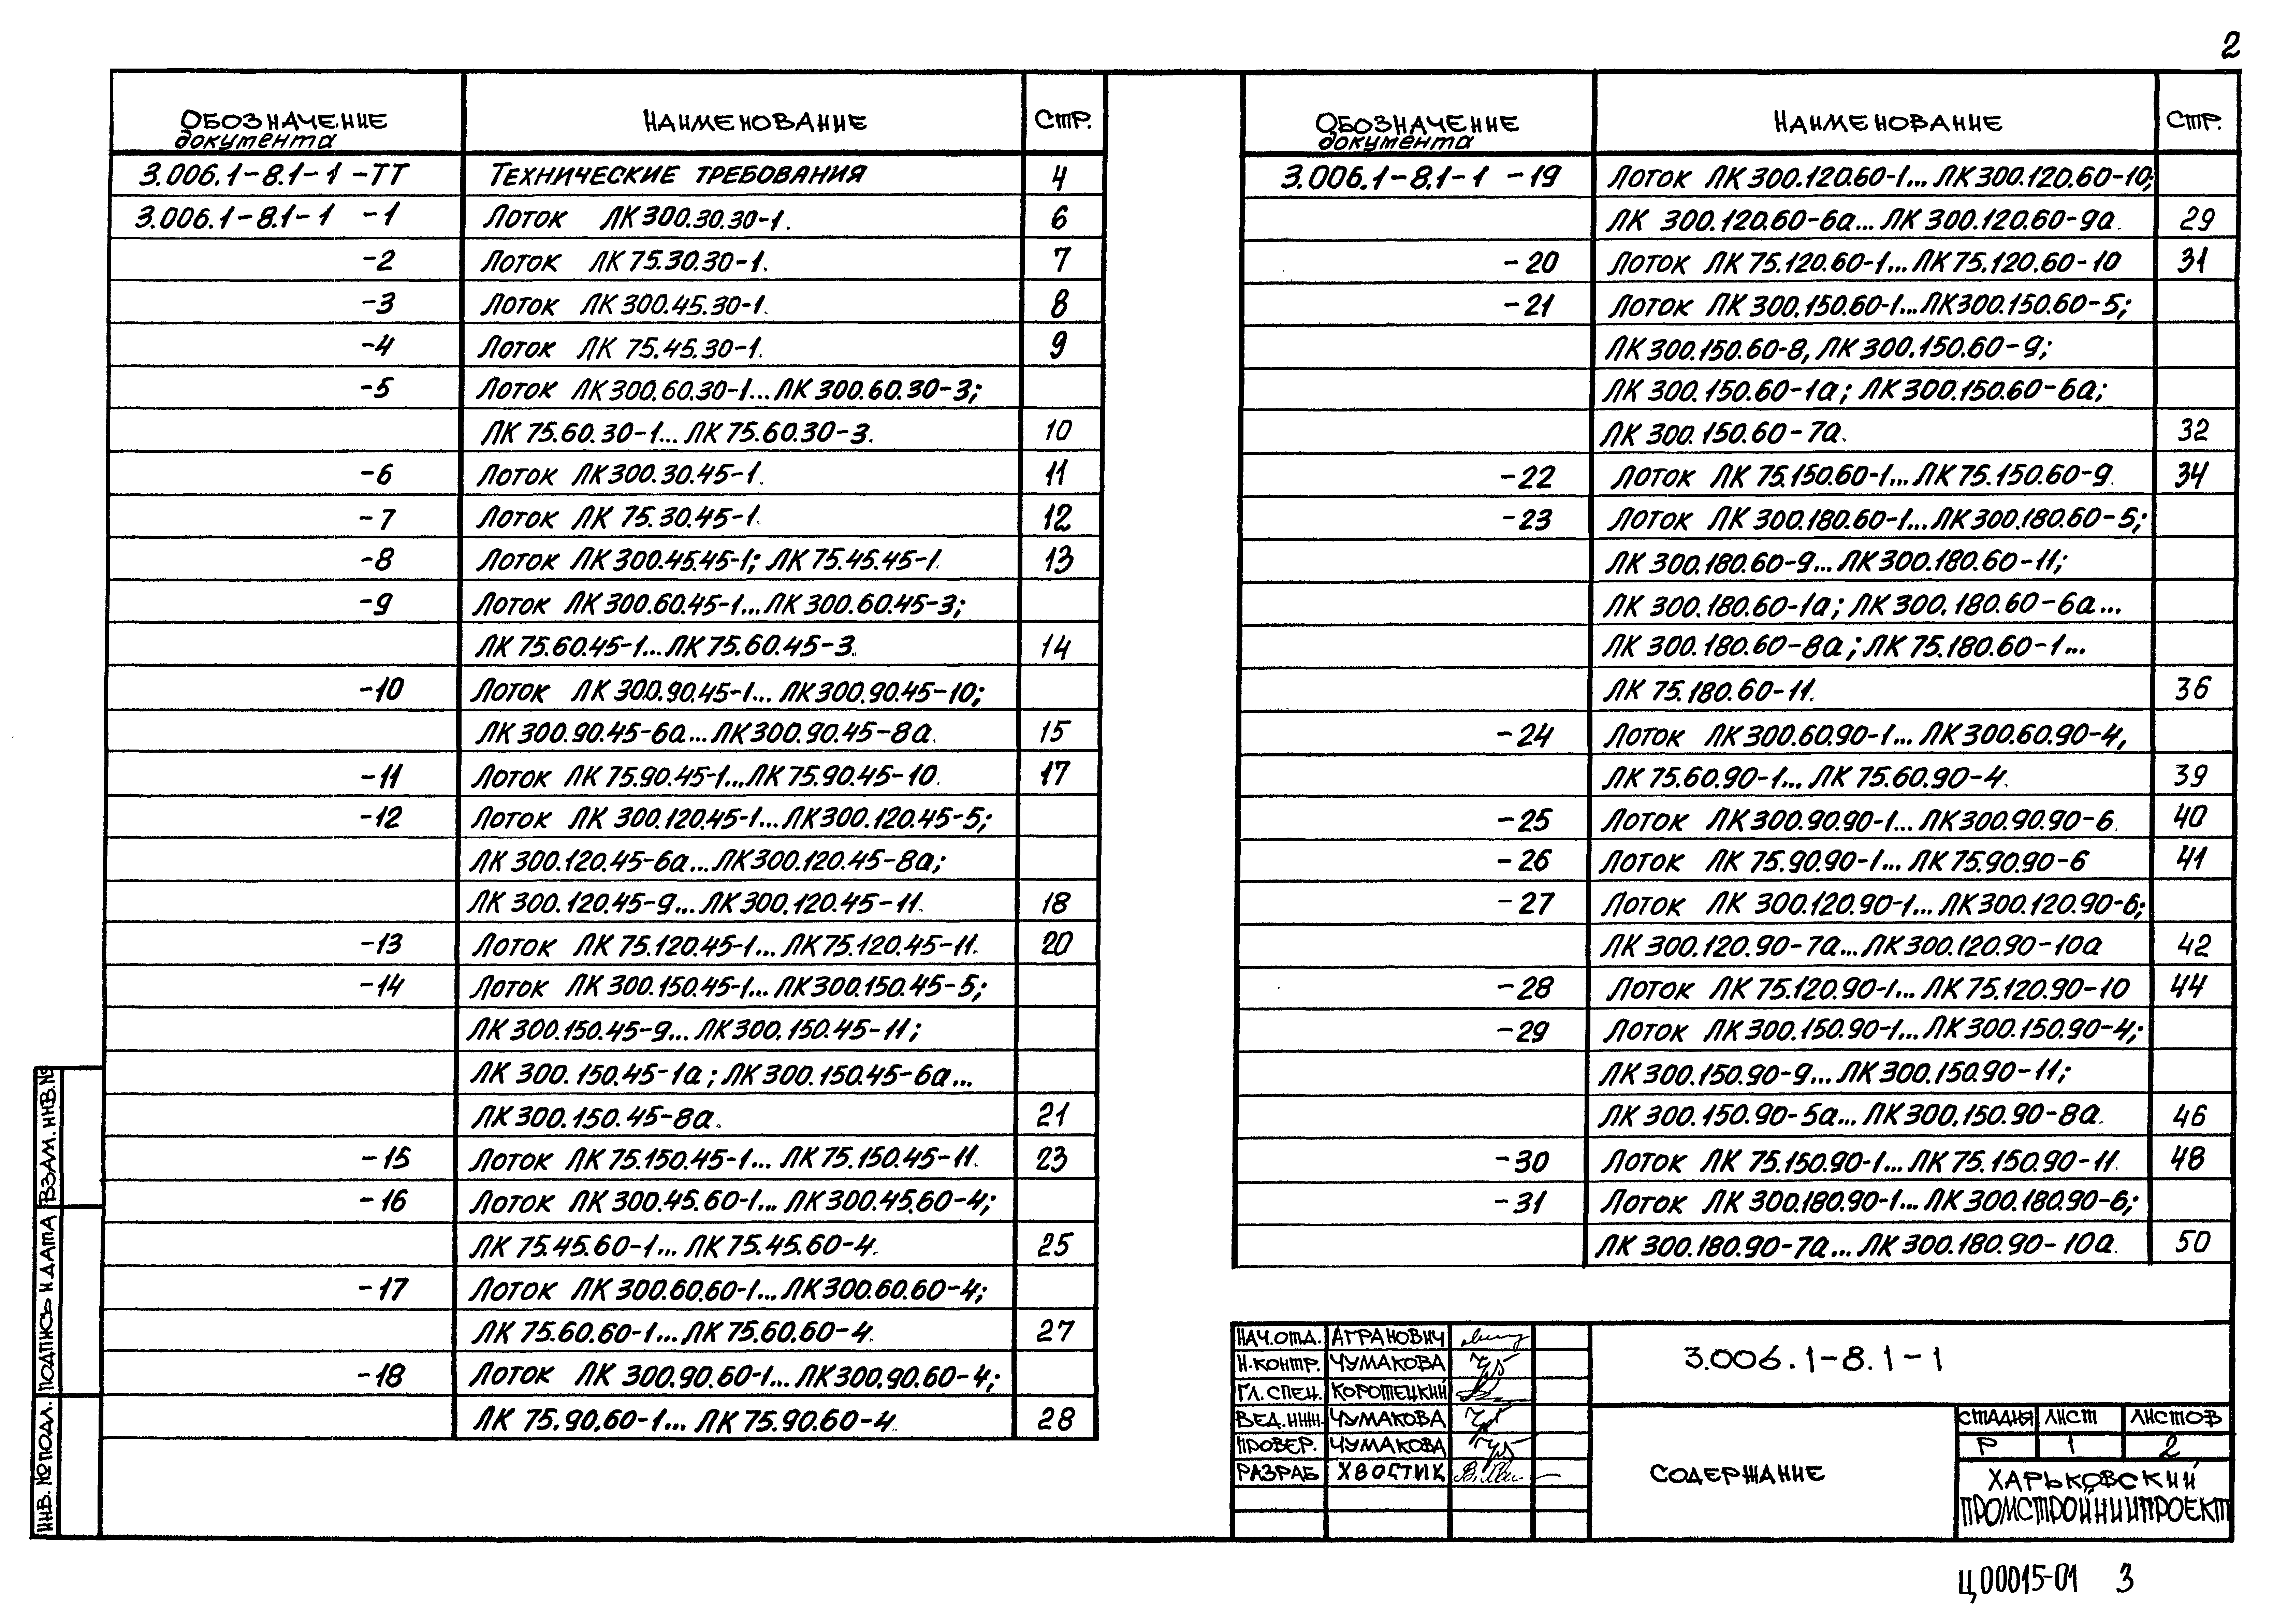 2
ОБОЗНАЧЕНИЕ документа НАИМЕНОВАНИЕ СТР.
3.006.1-8.1-1 -ТТ ТЕХНИЧЕСКИЕ ТРЕБОВАНИЯ 4
3.006.1-8.1-1 -1 Лоток ЛК 300.30.30-1. 6
-2 Лоток ЛК 75.30.30-1. 7
-3 Лоток ЛК 300.45.30-1. 8
-4 Лоток ЛК 75.45.30-1. 9
-5 Лоток ЛК 300.60.30-1...ЛК 300.60.30-3;
ЛК 75.60.30-1...ЛК 75.60.30-3. 10
-6 Лоток ЛК 300.30.45-1. 11
-7 Лоток ЛК 75.30.45-1. 12
-8 Лоток ЛК 300.45.45-1; ЛК 75.45.45-1. 13
-9 Лоток ЛК 300.60.45-1...ЛК 300.60.45-3;
ЛК 75.60.45-1...ЛК 75.60.45-3. 14
-10 Лоток ЛК 300.90.45-1...ЛК 300.90.45-10;
ЛК 300.90.45-6а...ЛК 300.90.45-8а. 15
-11 Лоток ЛК 75.90.45-1...ЛК 75.90.45-10. 17
-12 Лоток ЛК 300.120.45-1...ЛК 300.120.45-5;
ЛК 300.120.45-6а...ЛК 300.120.45-8а;
ЛК 300.120.45-9...ЛК 300.120.45-11. 18
-13 Лоток ЛК 75.120.45-1...ЛК 75.120.45-11. 20
-14 Лоток ЛК 300.150.45-1...ЛК 300.150.45-5;
ЛК 300.150.45-9...ЛК 300.150.45-11;
ЛК 300.150.45-1а; ЛК 300.150.45-6а...
ЛК 300.150.45-8а. 21
-15 Лоток ЛК 75.150.45-1...ЛК 75.150.45-11. 23
-16 Лоток ЛК 300.45.60-1...ЛК 300.45.60-4;
ЛК 75.45.60-1...ЛК 75.45.60-4. 25
-17 Лоток ЛК 300.60.60-1...ЛК 300.60.60-4;
ЛК 75.60.60-1...ЛК 75.60.60-4. 27
-18 Лоток ЛК 300.90.60-1...ЛК 300.90.60-4;
ЛК 75.90.60-1...ЛК 75.90.60-4. 28
ОБОЗНАЧЕНИЕ документа НАИМЕНОВАНИЕ СТР.
3.006.1-8.1-1 -19 Лоток ЛК 300.120.60-1...ЛК 300.120.60-10;
ЛК 300.120.60-6а...ЛК 300.120.60-9а. 29
-20 Лоток ЛК 75.120.60-1...ЛК 75.120.60-10 31
-21 Лоток ЛК 300.150.60-1...ЛК 300.150.60-5;
ЛК 300.150.60-8, ЛК 300.150.60-9;
ЛК 300.150.60-1а; ЛК 300.150.60-6а;
ЛК 300.150.60-7а. 32
-22 Лоток ЛК 75.150.60-1...ЛК 75.150.60-9. 34
-23 Лоток ЛК 300.180.60-1...ЛК 300.180.60-5;
ЛК 300.180.60-9...ЛК 300.180.60-11;
ЛК 300.180.60-1а; ЛК 300.180.60-6а...
ЛК 300.180.60-8а; ЛК 75.180.60-1...
ЛК 75.180.60-11. 36
-24 Лоток ЛК 300.60.90-1...ЛК 300.60.90-4,
ЛК 75.60.90-1...ЛК 75.60.90-4. 39
-25 Лоток ЛК 300.90.90-1...ЛК 300.90.90-6. 40
-26 Лоток ЛК 75.90.90-1...ЛК 75.90.90-6 41
-27 Лоток ЛК 300.120.90-1...ЛК 300.120.90-6;
ЛК 300.120.90-7а...ЛК 300.120.90-10а 42
-28 Лоток ЛК 75.120.90-1...ЛК 75.120.90-10 44
-29 Лоток ЛК 300.150.90-1...ЛК 300.150.90-4;
ЛК 300.150.90-9...ЛК 300.150.90-11;
ЛК 300.150.90-5а...ЛК 300.150.90-8а. 46
-30 Лоток ЛК 75.150.90-1...ЛК 75.150.90-11. 48
-31 Лоток ЛК 300.180.90-1...ЛК 300.180.90-6;
ЛК 300.180.90-7а...ЛК 300.180.90-10а. 50
НАЧ.ОТД. АГРАНОВИЧ
Н.КОНТР. ЧУМАКОВА
ГЛ.СПЕЦ. КОРОТЕЦКИЙ
ВЕД.ИНЖ. ЧУМАКОВА
ПРОВЕР. ЧУМАКОВА
РАЗРАБ ХВОСТИК
3.006.1-8.1-1
СОДЕРЖАНИЕ
СТАДИЯ ЛИСТ ЛИСТОВ
Р 1 2
ХАРЬКОВСКИЙ
ПРОМСТРОЙНИИПРОЕКТ
ИНВ. № ПОДЛ. ПОДПИСЬ И ДАТА ВЗАМ. ИНВ. №
Ц00015-01 3